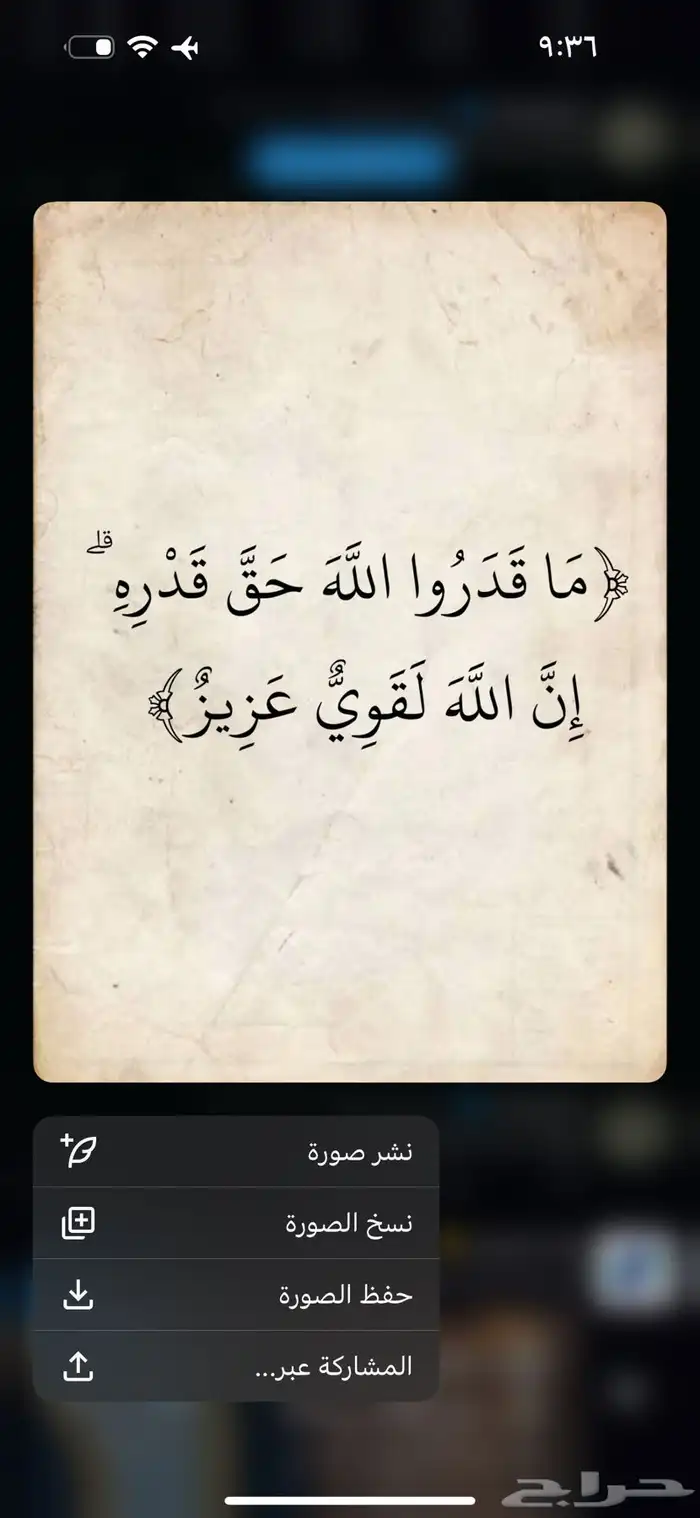 ٩:٣٦
﴿مَا قَدَرُوا اللَّهَ حَقَّ قَدْرِهِ ۗ
إِنَّ اللَّهَ لَقَوِيٌّ عَزِيزٌ﴾
نشر صورة
نسخ الصورة
حفظ الصورة
المشاركة عبر...
حراج